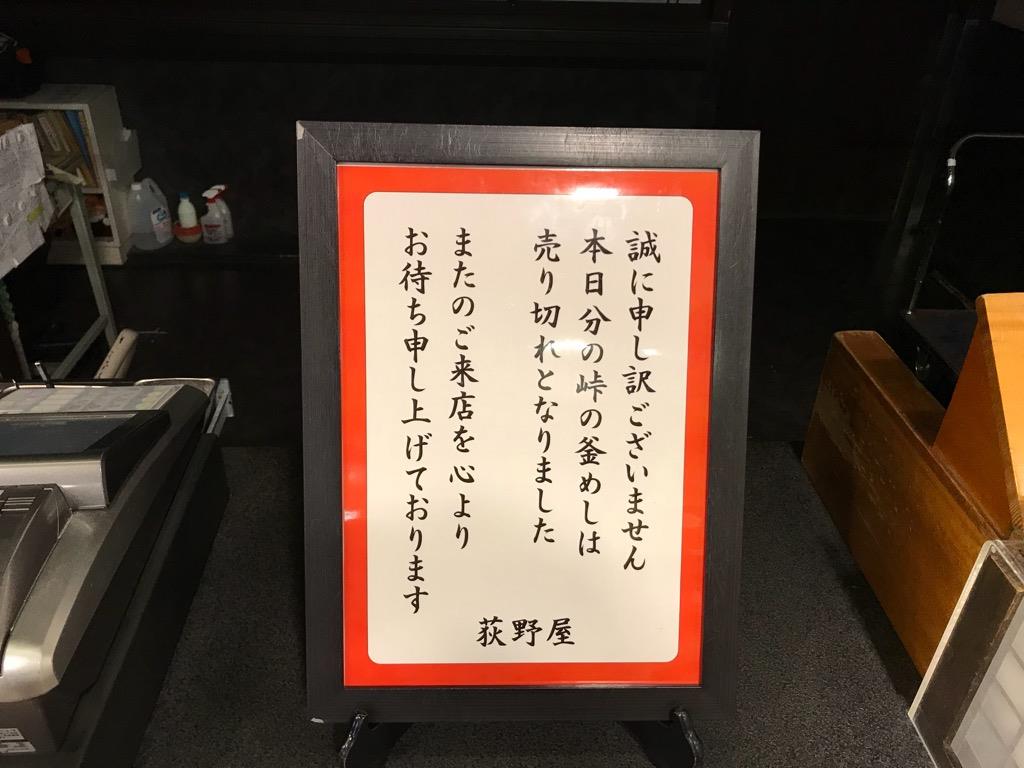 誠に申し訳ございません
本日分の峠の釜めしは
売り切れとなりました
またのご来店を心より
お待ち申し上げております
荻野屋